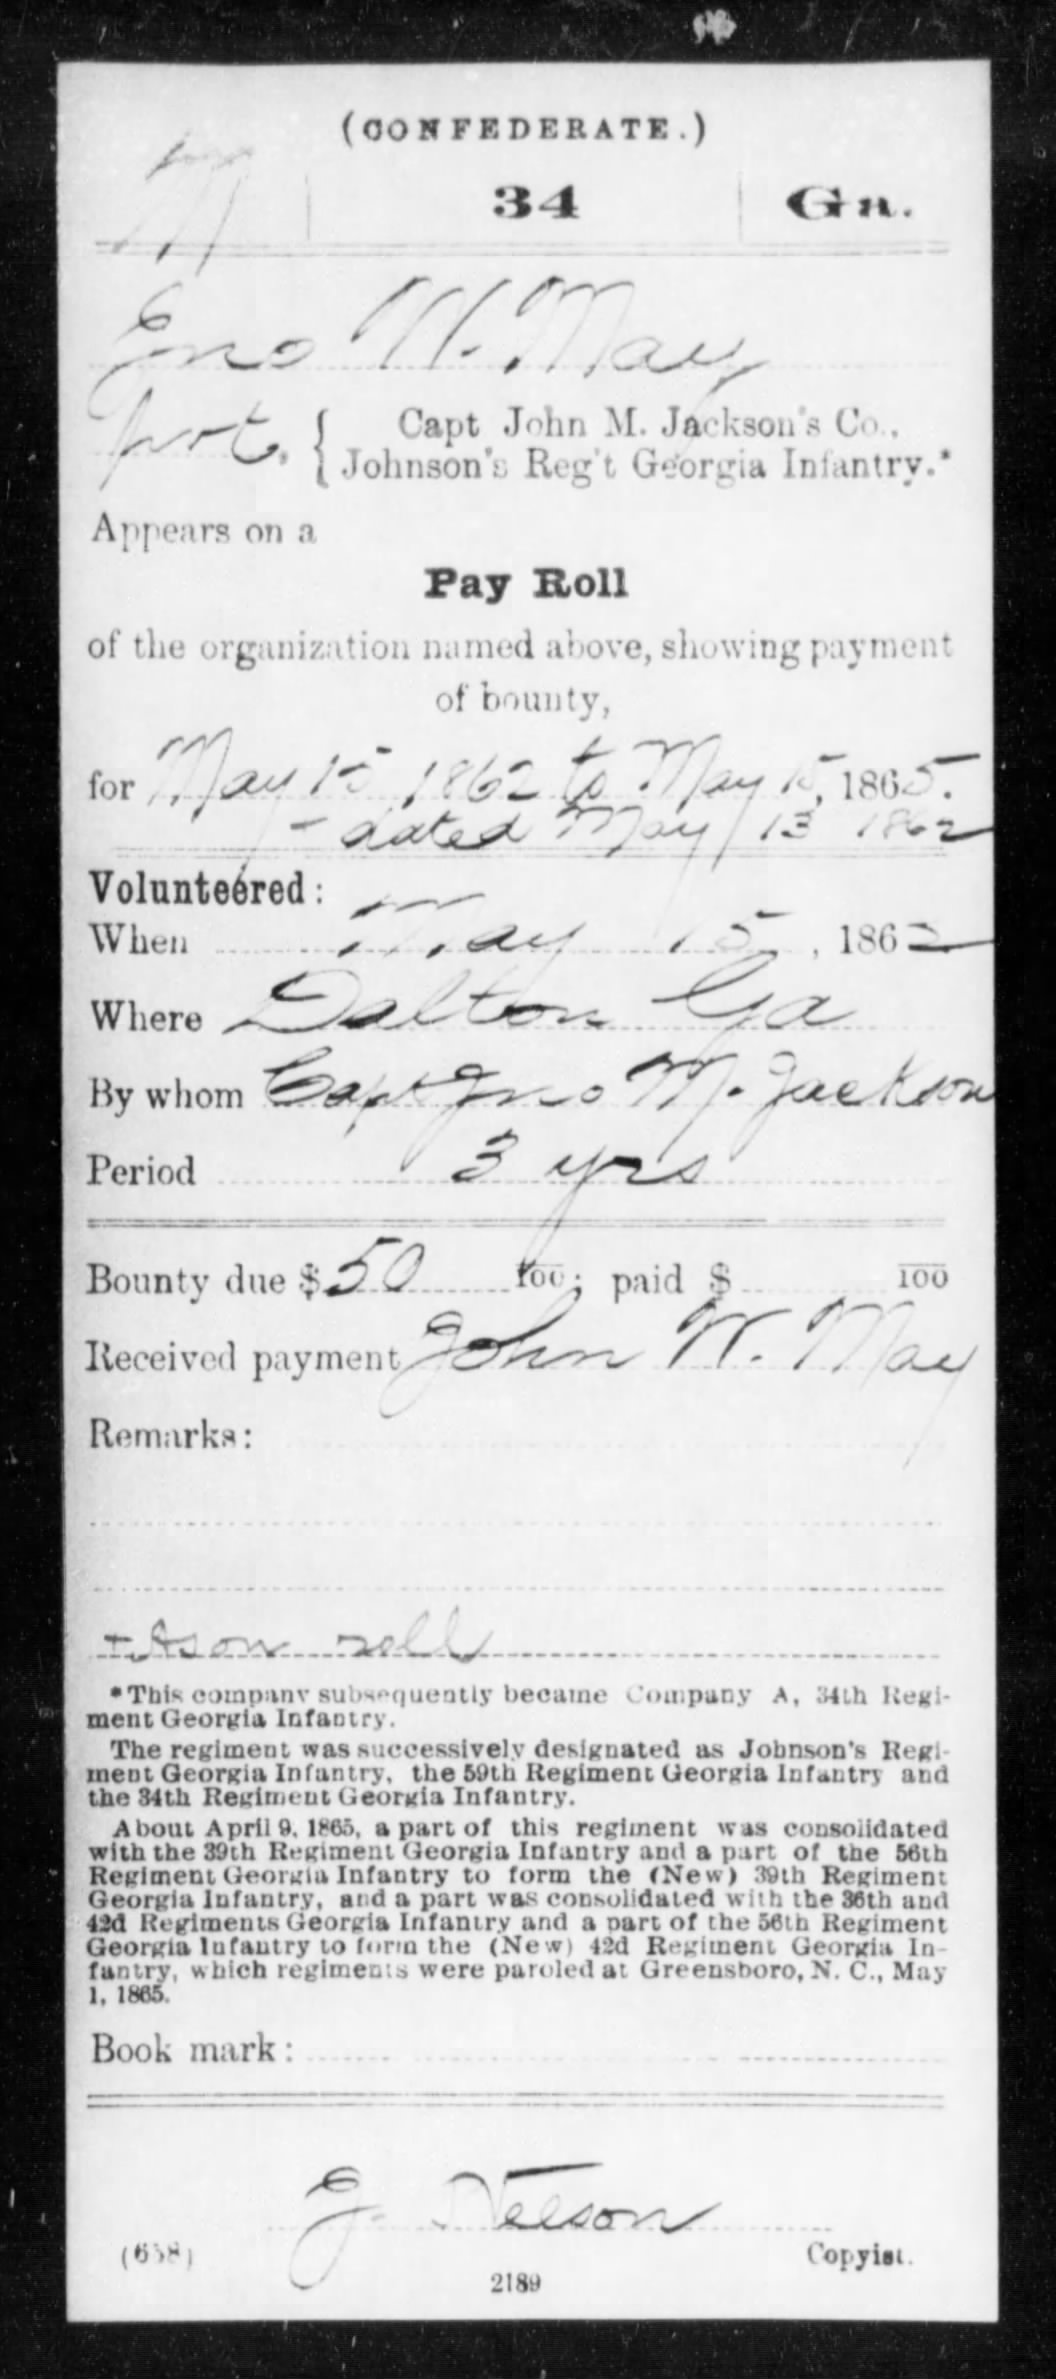 (CONFEDERATE.)
M | 34 | Ga.
Jno W. May
Pvt. { Capt John M. Jackson's Co.,
Johnson's Reg't Georgia Infantry.*
Appears on a
Pay Roll
of the organization named above, showing payment
of bounty,
for May 15 1862 to May 15, 1865.
- dated May 13 1862
Volunteered:
When May 15, 1862
Where Dalton Ga
By whom Capt Jno M. Jackson
Period 3 yrs
Bounty due $50 100; paid $ 100
Received payment John W. May
Remarks:
+ As on roll
*This company subsequently became Company A, 34th Regi-
ment Georgia Infantry.
The regiment was successively designated as Johnson's Regi-
ment Georgia Infantry, the 59th Regiment Georgia Infantry and
the 34th Regiment Georgia Infantry.
About April 9, 1865, a part of this regiment was consolidated
with the 39th Regiment Georgia Infantry and a part of the 56th
Regiment Georgia Infantry to form the (New) 39th Regiment
Georgia Infantry, and a part was consolidated with the 36th and
42d Regiments Georgia Infantry and a part of the 56th Regiment
Georgia Infantry to form the (New) 42d Regiment Georgia In-
fantry, which regiments were paroled at Greensboro, N. C., May
1, 1865.
Book mark:
J. Nelson
(658) Copyist.
2189